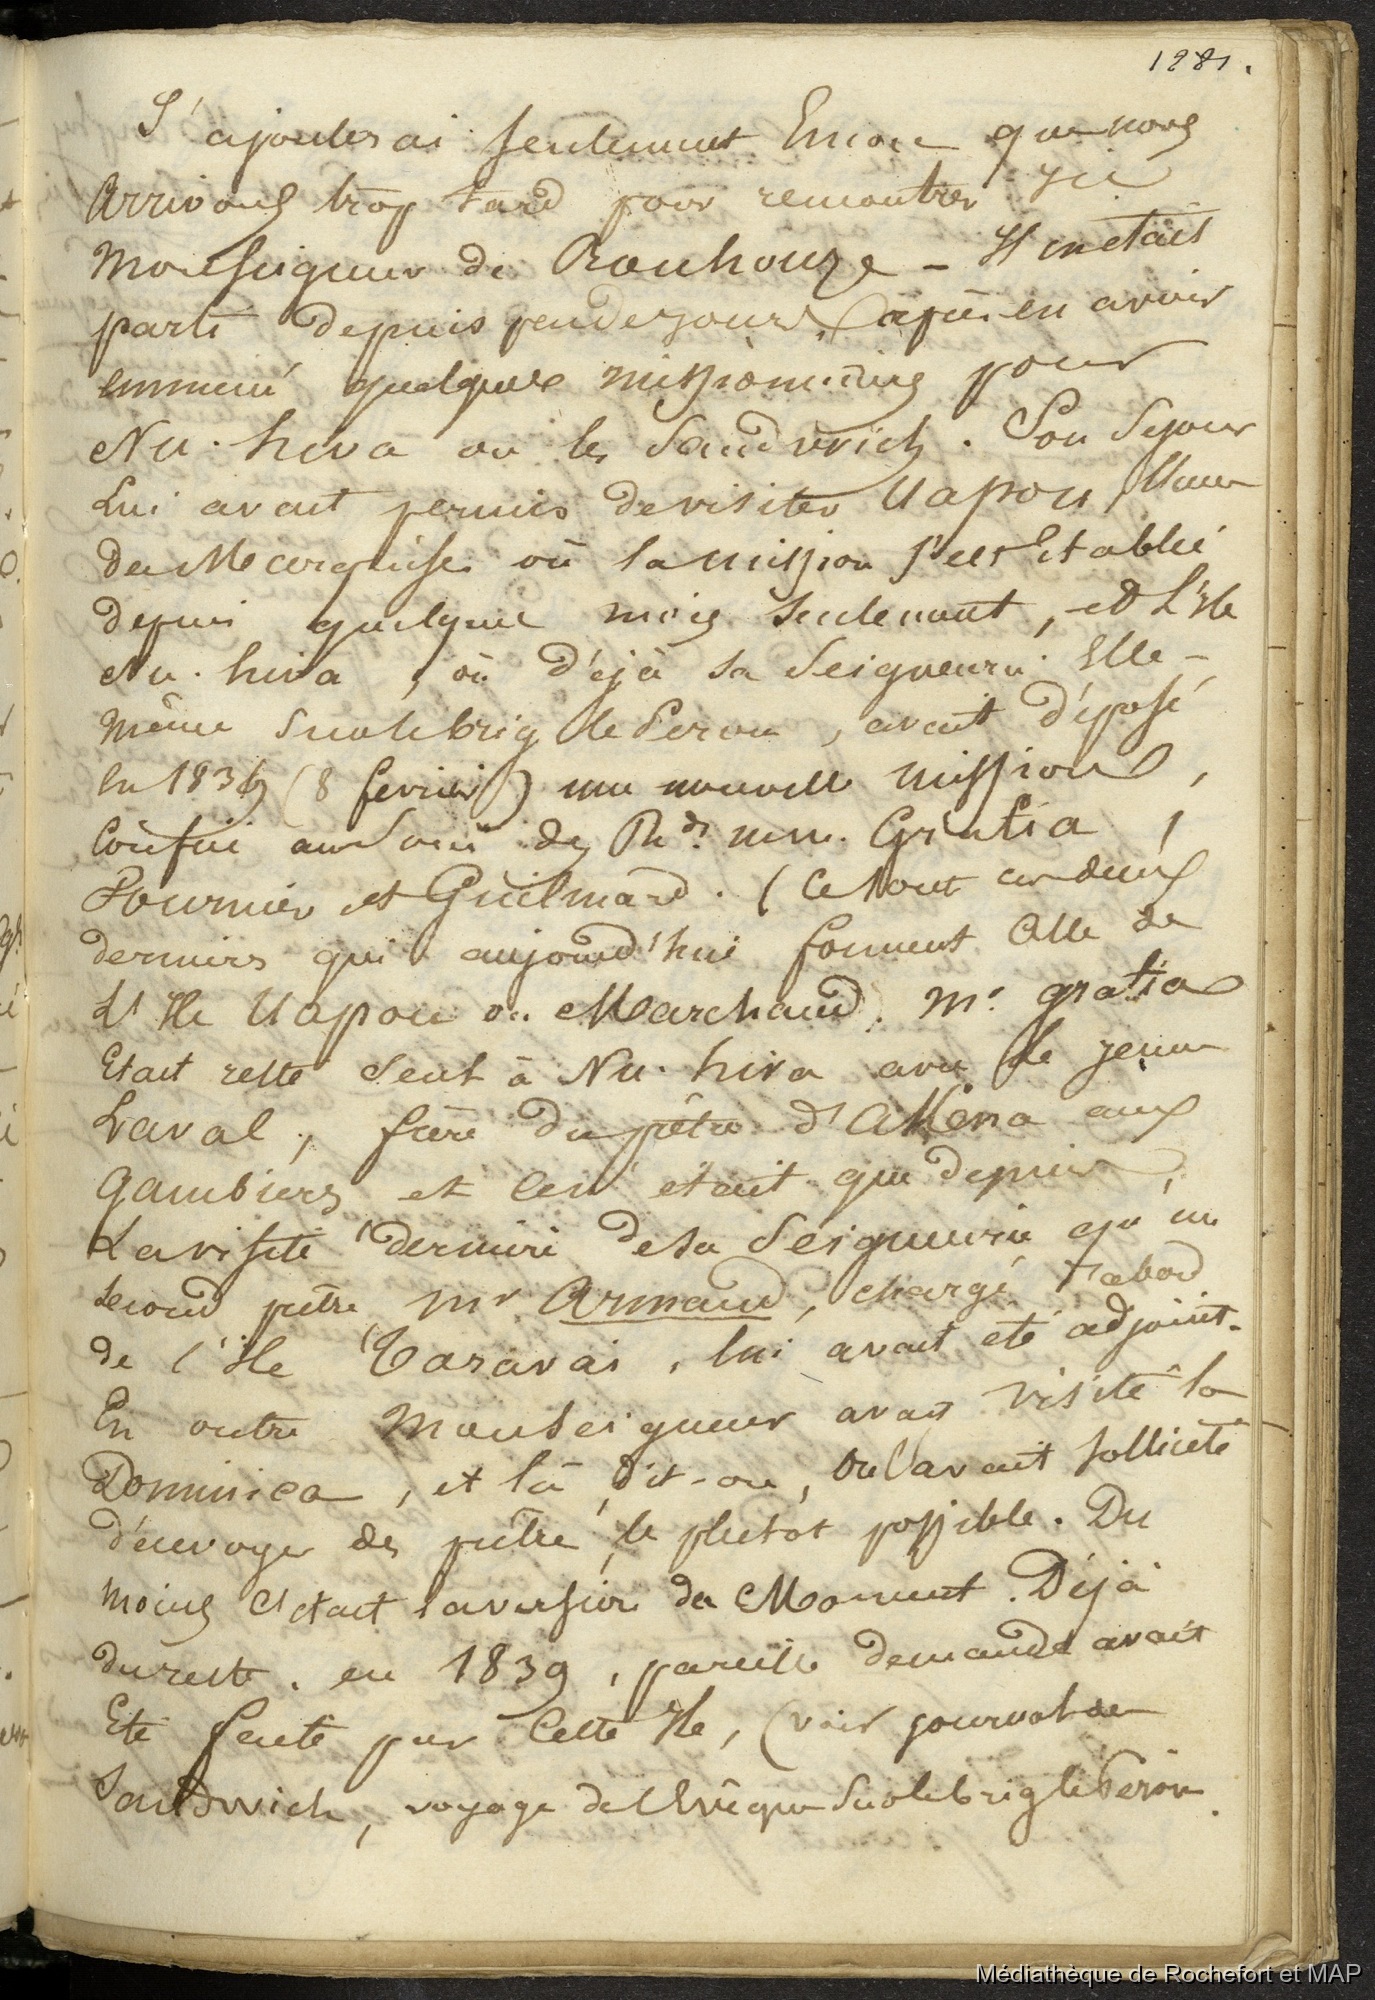 1281.
J'ajouterai seulement Encore que nous
arrivons trop tard pour remontrer ici
Monseigneur de Rouchouze - Il en était
parti depuis peu de jours, après en avoir
emmené quelques missionnaires pour
Nu-hiva ou les Sandwich. Son séjour
Lui avait permis de visiter Uapou, l'une
des Marquises où la mission s'est Etablie
depuis quelques mois seulement, et L'Ile
Nu-hiva, où déjà sa Seigneurie Elle-
même sur le brig le Perou, avait déposé
En 1839 (8 fevrier) une nouvelle mission,
Confiée aux soins des Rds mm. Gratia,
Fournier et Guilmard. (Ce sont ces deux
derniers qui aujourd'hui forment Celle de
L'Ile Uapou ou Marchand. Mr gratia
Etait resté seul à Nu-hiva avec le jeune
Laval, frère du prêtre d'Akena aux
Gambiers et ce n'était que depuis
La visite dernière de sa Seigneurie qu'un
second prêtre Mr Armand, chargé d'abord
de l'Ile Taravai, lui avait été adjoint.
En outre Monseigneur avait visité la
Dominica, et là, dit-on, on l'avait sollicité
d'envoyer des prêtres le plutot possible. Du
moins C'etait la version du Moment. Déjà
du reste, en 1839, pareille demande avait
Eté faite par Cette Ile, (voir journal de
Sandwich, voyage de l'Evêque sur le brig le Perou.
Médiathèque de Rochefort et MAP